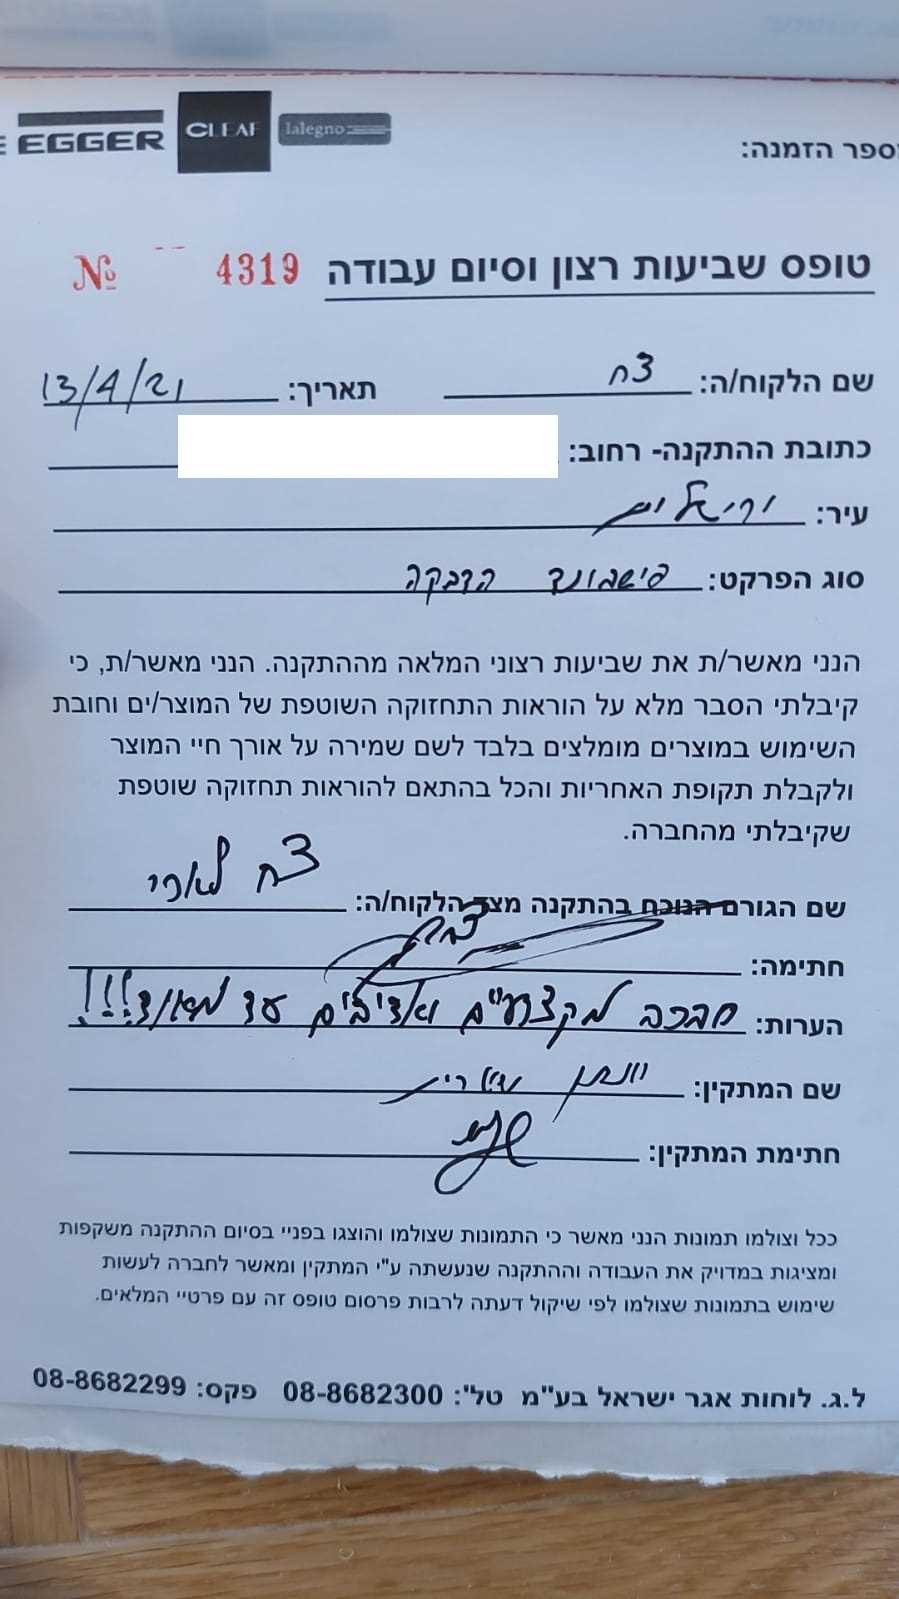 EGGER CLEAF lalegno
מספר הזמנה:
טופס שביעות רצון וסיום עבודה 4319 №
שם הלקוח/ה: צח תאריך: 13/4/21
כתובת ההתקנה- רחוב:
עיר: ירושלים
סוג הפרקט: פישבונד הדבקה
הנני מאשר/ת את שביעות רצוני המלאה מההתקנה. הנני מאשר/ת, כי
קיבלתי הסבר מלא על הוראות התחזוקה השוטפת של המוצר/ים וחובת
השימוש במוצרים מומלצים בלבד לשם שמירה על אורך חיי המוצר
ולקבלת תקופת האחריות והכל בהתאם להוראות תחזוקה שוטפת
שקיבלתי מהחברה.
שם הגורם הנוכח בהתקנה מצד הלקוח/ה: צח
חתימה:
הערות: חברה מקצועיים ואדיבים עד מאוד!!!
שם המתקין:
חתימת המתקין:
ככל וצולמו תמונות הנני מאשר כי התמונות שצולמו והוצגו בפניי בסיום ההתקנה משקפות
ומציגות במדויק את העבודה וההתקנה שנעשתה ע"י המתקין ומאשר לחברה לעשות
שימוש בתמונות שצולמו לפי שיקול דעתה לרבות פרסום טופס זה עם פרטיי המלאים.
ל.ג. לוחות אגר ישראל בע"מ טל': 08-8682300 פקס: 08-8682299